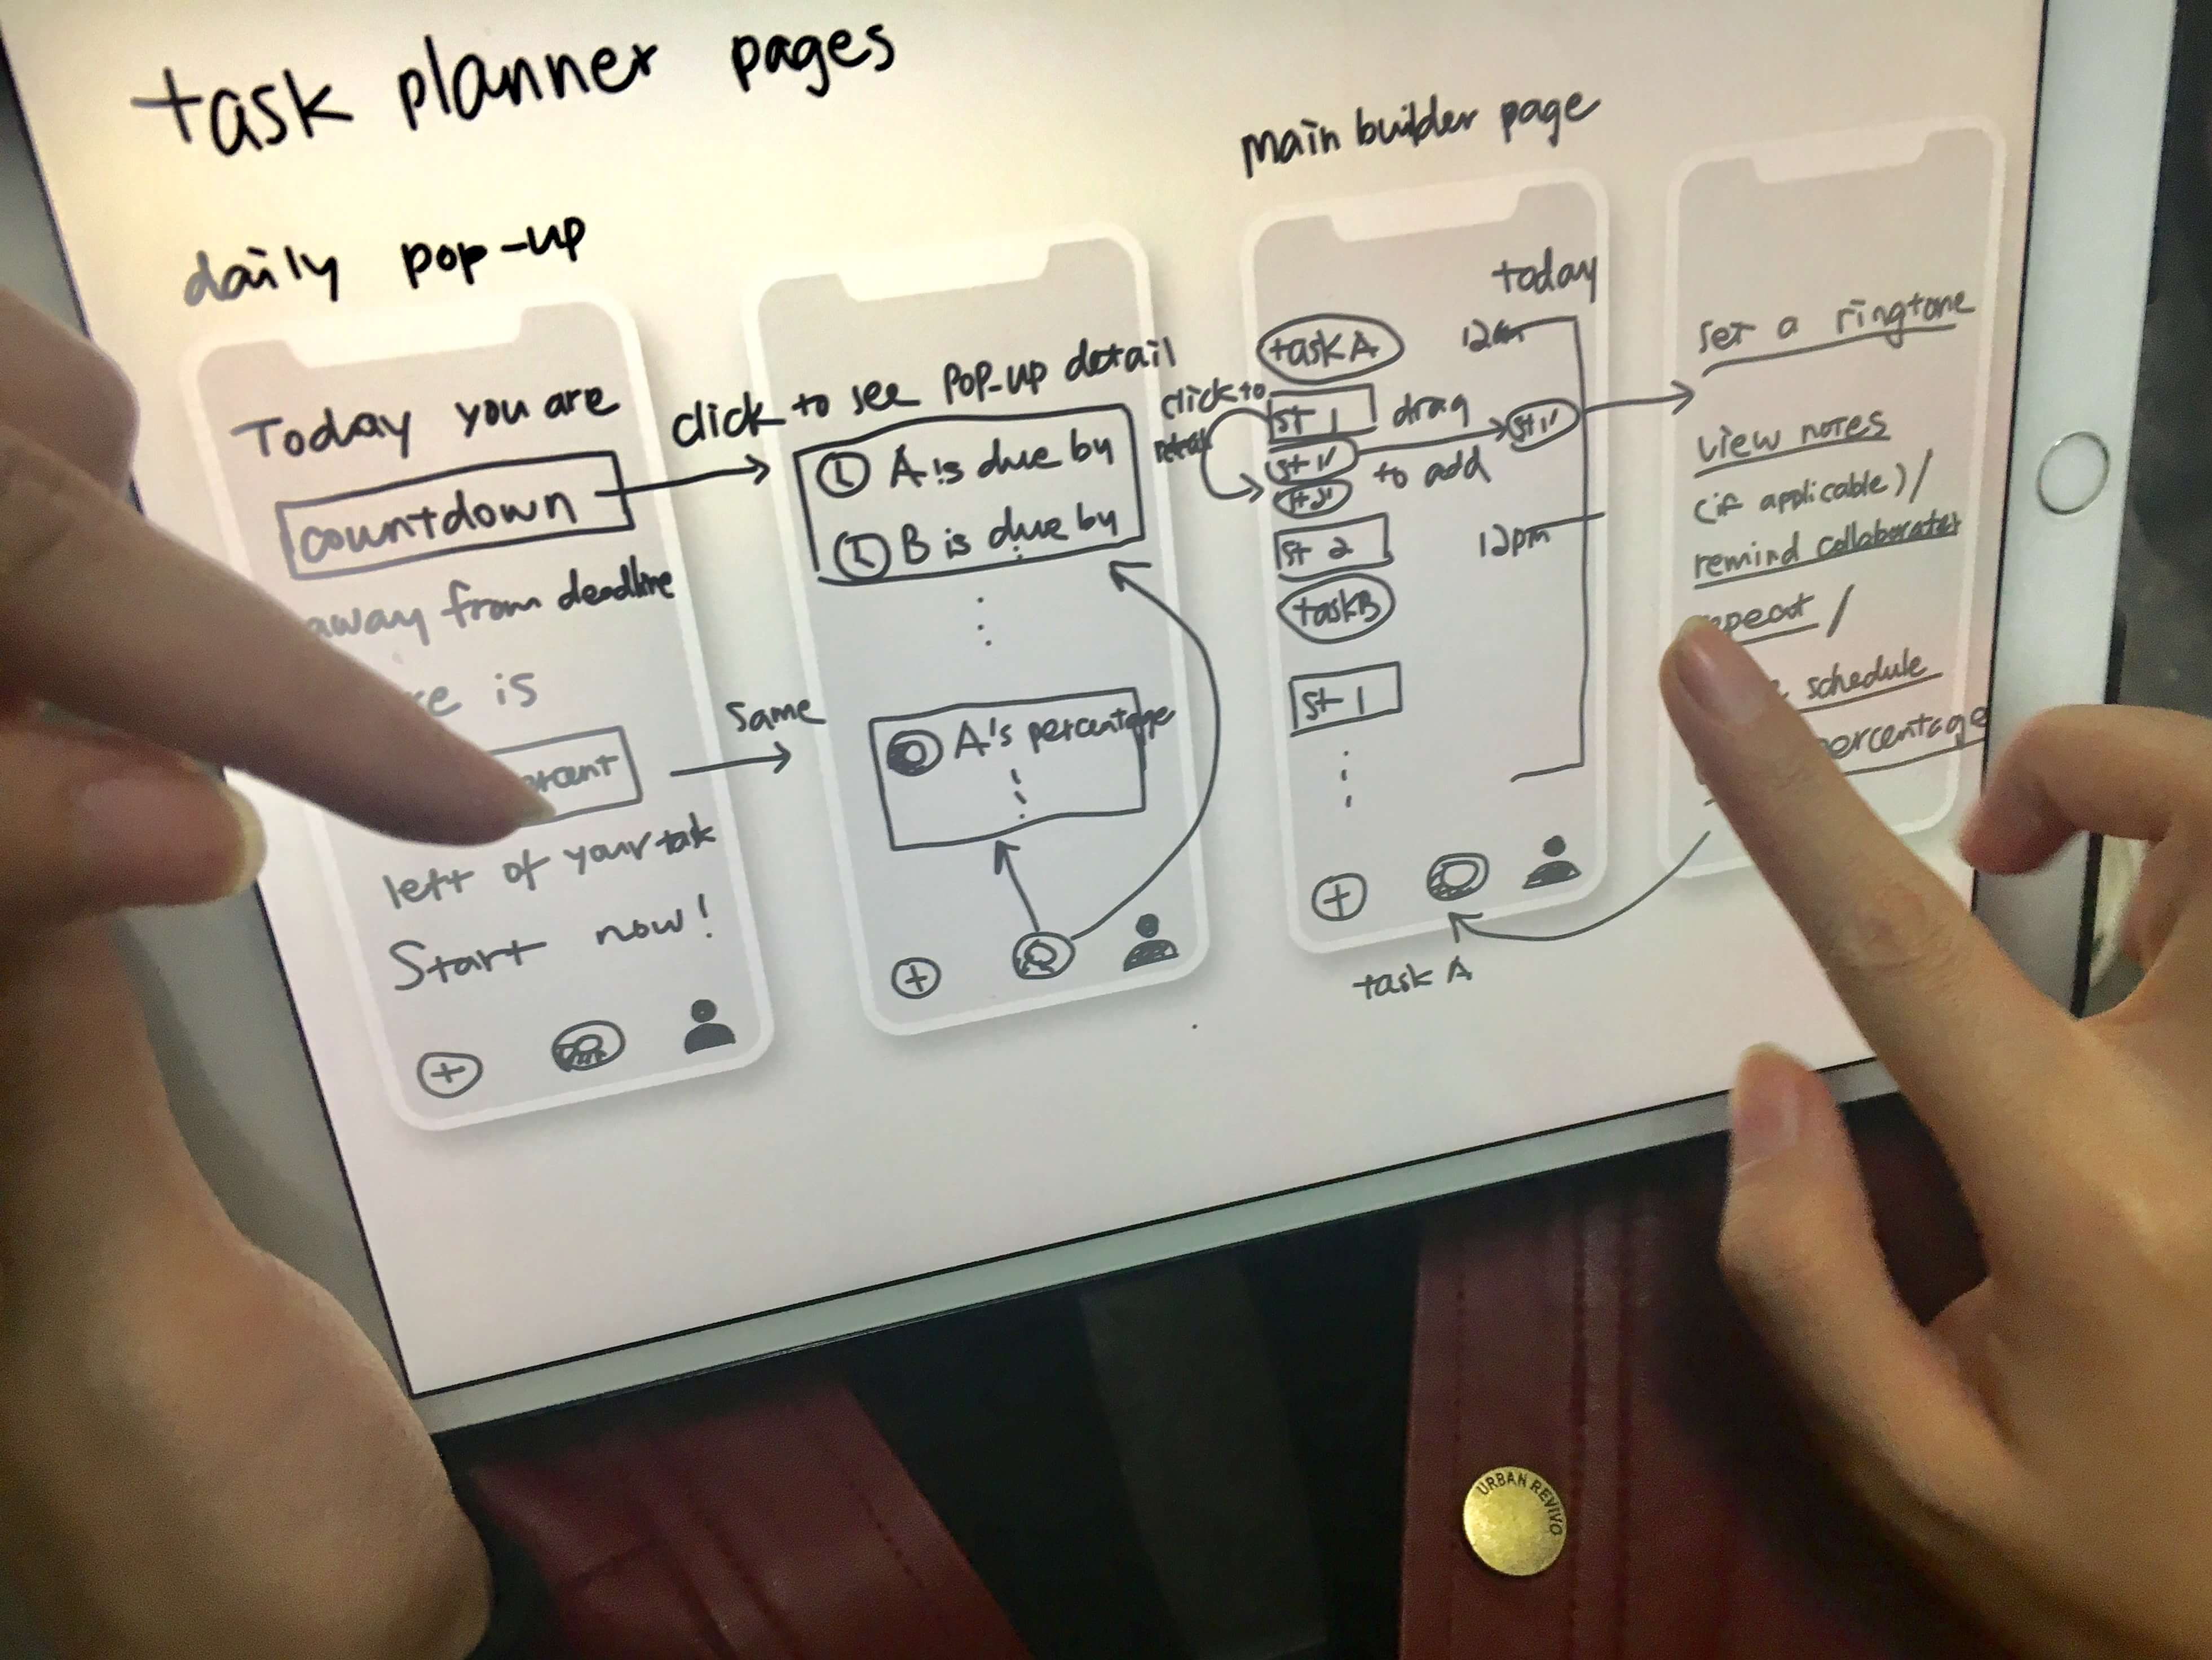 task planner pages
daily pop-up
Today you are
countdown
away from deadline
is
left of your task
Start now!
click to see pop-up detail
A is due by
B is due by
same
A's percentage
main builder page
today
task A
12am
click to
st 1
drag
to add
st 2
12pm
task B
st 1
task A
set a ringtone
view notes
(if applicable) /
remind collaborator
/
schedule
URBAN REVIVO